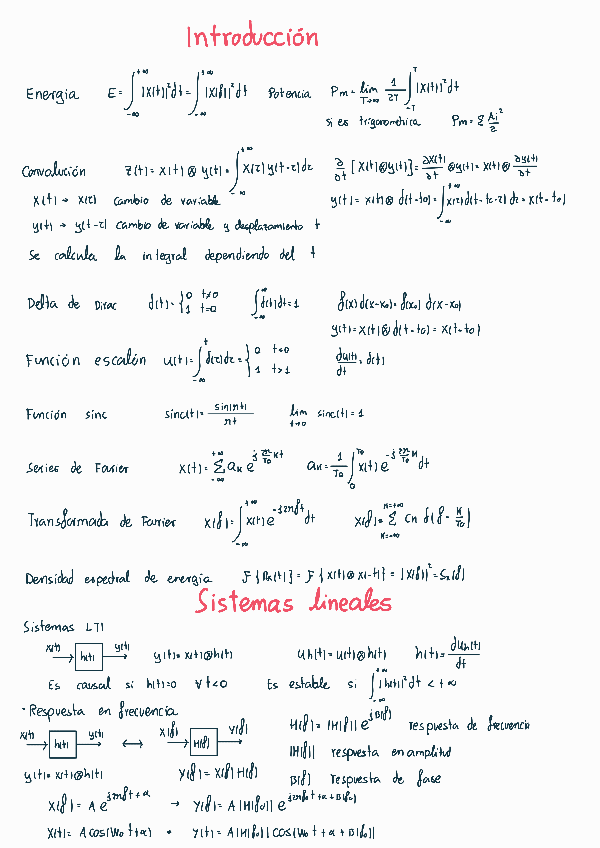 Introducción
Energía E = ∫_{-∞}^{+∞} |x(t)|² dt = ∫_{-∞}^{+∞} |X(f)|² df Potencia Pm = lim_{T→∞} 1/2T ∫_{-T}^{T} |x(t)|² dt
si es trigonométrica Pm = Σ Ai²/2
Convolución z(t) = x(t) ⊗ y(t) = ∫_{-∞}^{+∞} x(τ) y(t-τ) dτ ∂/∂t [x(t) ⊗ y(t)] = ∂x(t)/∂t ⊗ y(t) = x(t) ⊗ ∂y(t)/∂t
x(t) → x(τ) cambio de variable y(t) = x(t) ⊗ δ(t-t0) = ∫_{-∞}^{+∞} x(τ) δ(t-t0-τ) dτ = x(t-t0)
y(t) → y(t-τ) cambio de variable y desplazamiento t
Se calcula la integral dependiendo del t
Delta de Dirac δ(t) = {0 t≠0 1 t=0 ∫_{-∞}^{+∞} δ(t) dt = 1 f(x) δ(x-x0) = f(x0) δ(x-x0)
y(t) = x(t) ⊗ δ(t-t0) = x(t-t0)
Función escalón u(t) = ∫_{-∞}^{t} δ(τ) dτ = {0 t<0 1 t>1 du(t)/dt = δ(t)
Función sinc sinc(t) = sin(πt)/πt lim_{t→0} sinc(t) = 1
Series de Fourier x(t) = Σ_{-∞}^{+∞} ak e^{j 2π/T0 kt} ak = 1/T0 ∫_{0}^{T0} x(t) e^{-j 2π/T0 kt} dt
Transformada de Fourier X(f) = ∫_{-∞}^{+∞} x(t) e^{-j2πft} dt X(f) = Σ_{k=-∞}^{k=+∞} Cn δ(f - k/T0)
Densidad espectral de energía F{Rx(t)} = F{x(t) ⊗ x(-t)} = |X(f)|² = Sx(f)
Sistemas lineales
Sistemas LTI
x(t) → h(t) → y(t) y(t) = x(t) ⊗ h(t) uh(t) = u(t) ⊗ h(t) h(t) = duh(t)/dt
Es causal si h(t)=0 ∀ t<0 Es estable si ∫_{-∞}^{+∞} |h(t)|² dt < +∞
· Respuesta en frecuencia
x(t) → h(t) → y(t) ↔ X(f) → H(f) → Y(f) H(f) = |H(f)| e^{jB(f)} respuesta de frecuencia
|H(f)| respuesta en amplitud
y(t) = x(t) ⊗ h(t) Y(f) = X(f) H(f) B(f) respuesta de fase
X(f) = A e^{j2πft+α} → Y(f) = A |H(f0)| e^{j2πf0t+α+B(f0)}
x(t) = A cos(w0t+α) → y(t) = A |H(f0)| cos(w0t+α+B(f0))